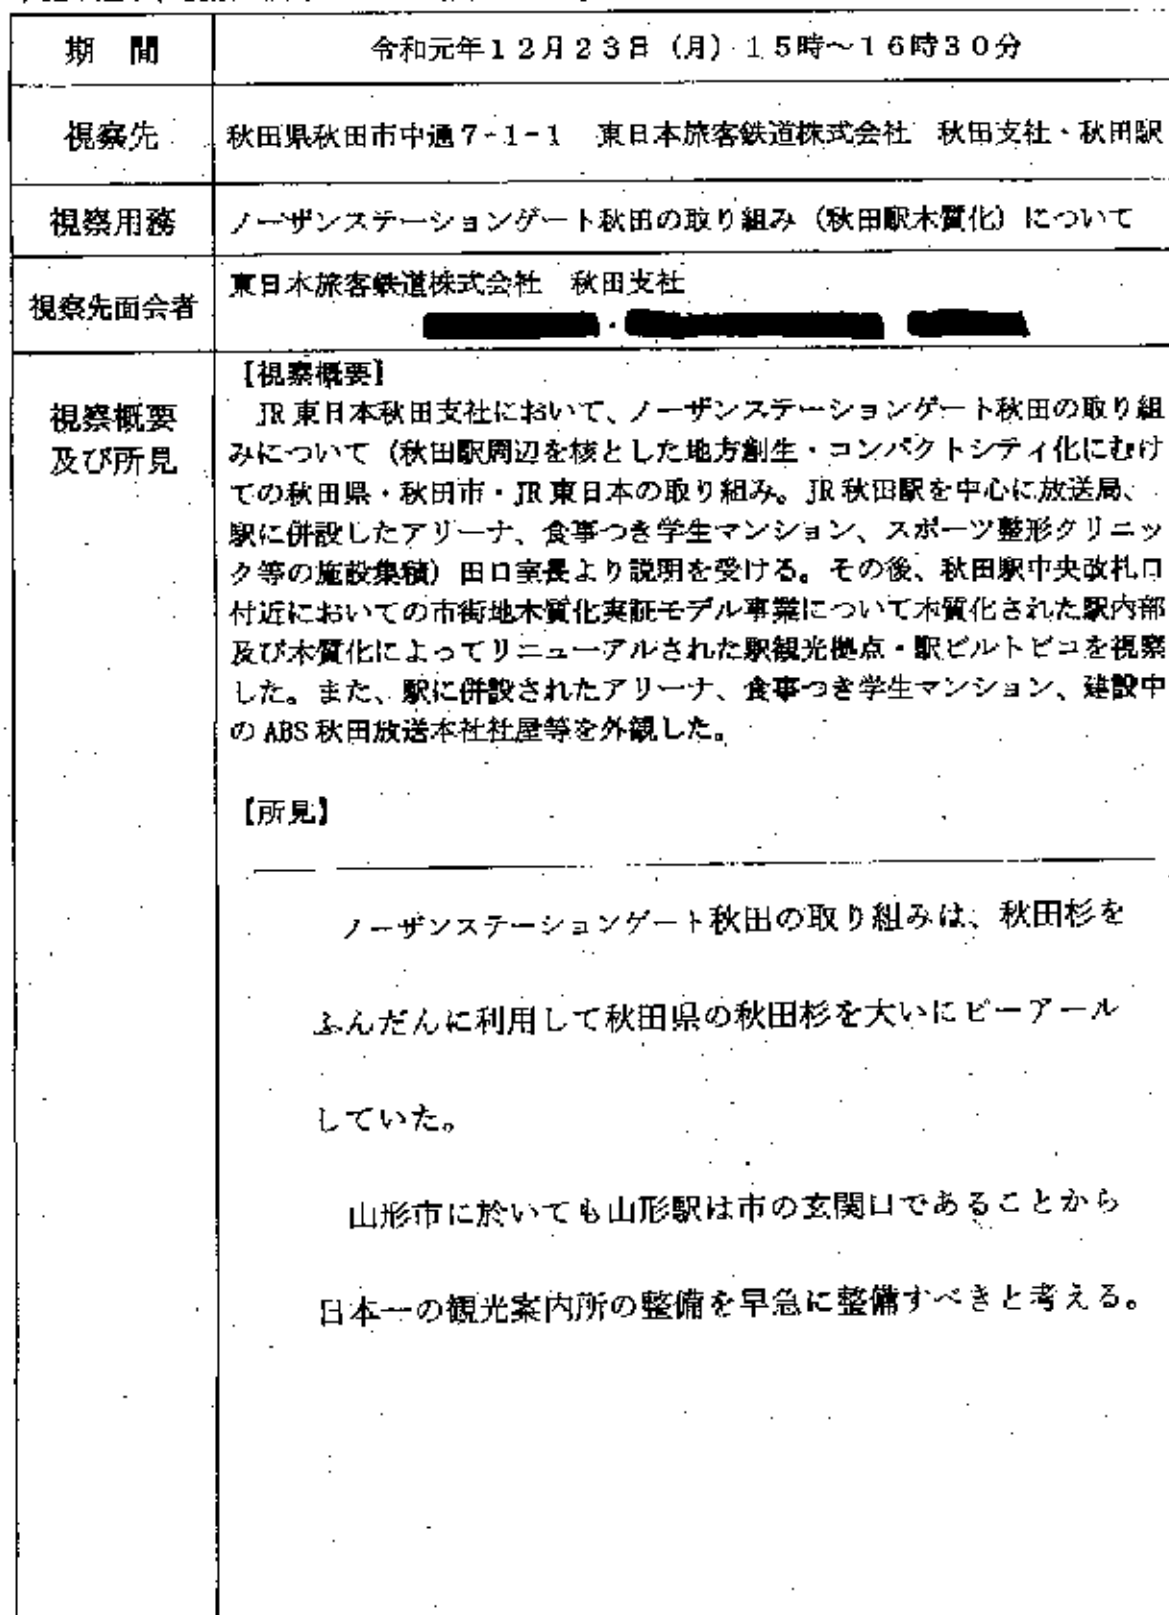 期　間
令和元年１２月２３日（月）１５時～１６時３０分
視察先
秋田県秋田市中通7-1-1　東日本旅客鉄道株式会社　秋田支社・秋田駅
視察用務
ノーザンステーションゲート秋田の取り組み（秋田駅木質化）について
視察先面会者
東日本旅客鉄道株式会社　秋田支社
視察概要
及び所見
【視察概要】
JR東日本秋田支社において、ノーザンステーションゲート秋田の取り組
みについて（秋田駅周辺を核とした地方創生・コンパクトシティ化にむけ
ての秋田県・秋田市・JR東日本の取り組み。JR秋田駅を中心に放送局、
駅に併設したアリーナ、食事つき学生マンション、スポーツ整形クリニッ
ク等の施設集積）田口室長より説明を受ける。その後、秋田駅中央改札口
付近においての市街地木質化実証モデル事業について木質化された駅内部
及び木質化によってリニューアルされた駅観光拠点・駅ビルトピコを視察
した。また、駅に併設されたアリーナ、食事つき学生マンション、建設中
のABS秋田放送本社社屋等を外観した。
【所見】
ノーザンステーションゲート秋田の取り組みは、秋田杉を
ふんだんに利用して秋田県の秋田杉を大いにピーアール
していた。
山形市に於いても山形駅は市の玄関口であることから
日本一の観光案内所の整備を早急に整備すべきと考える。